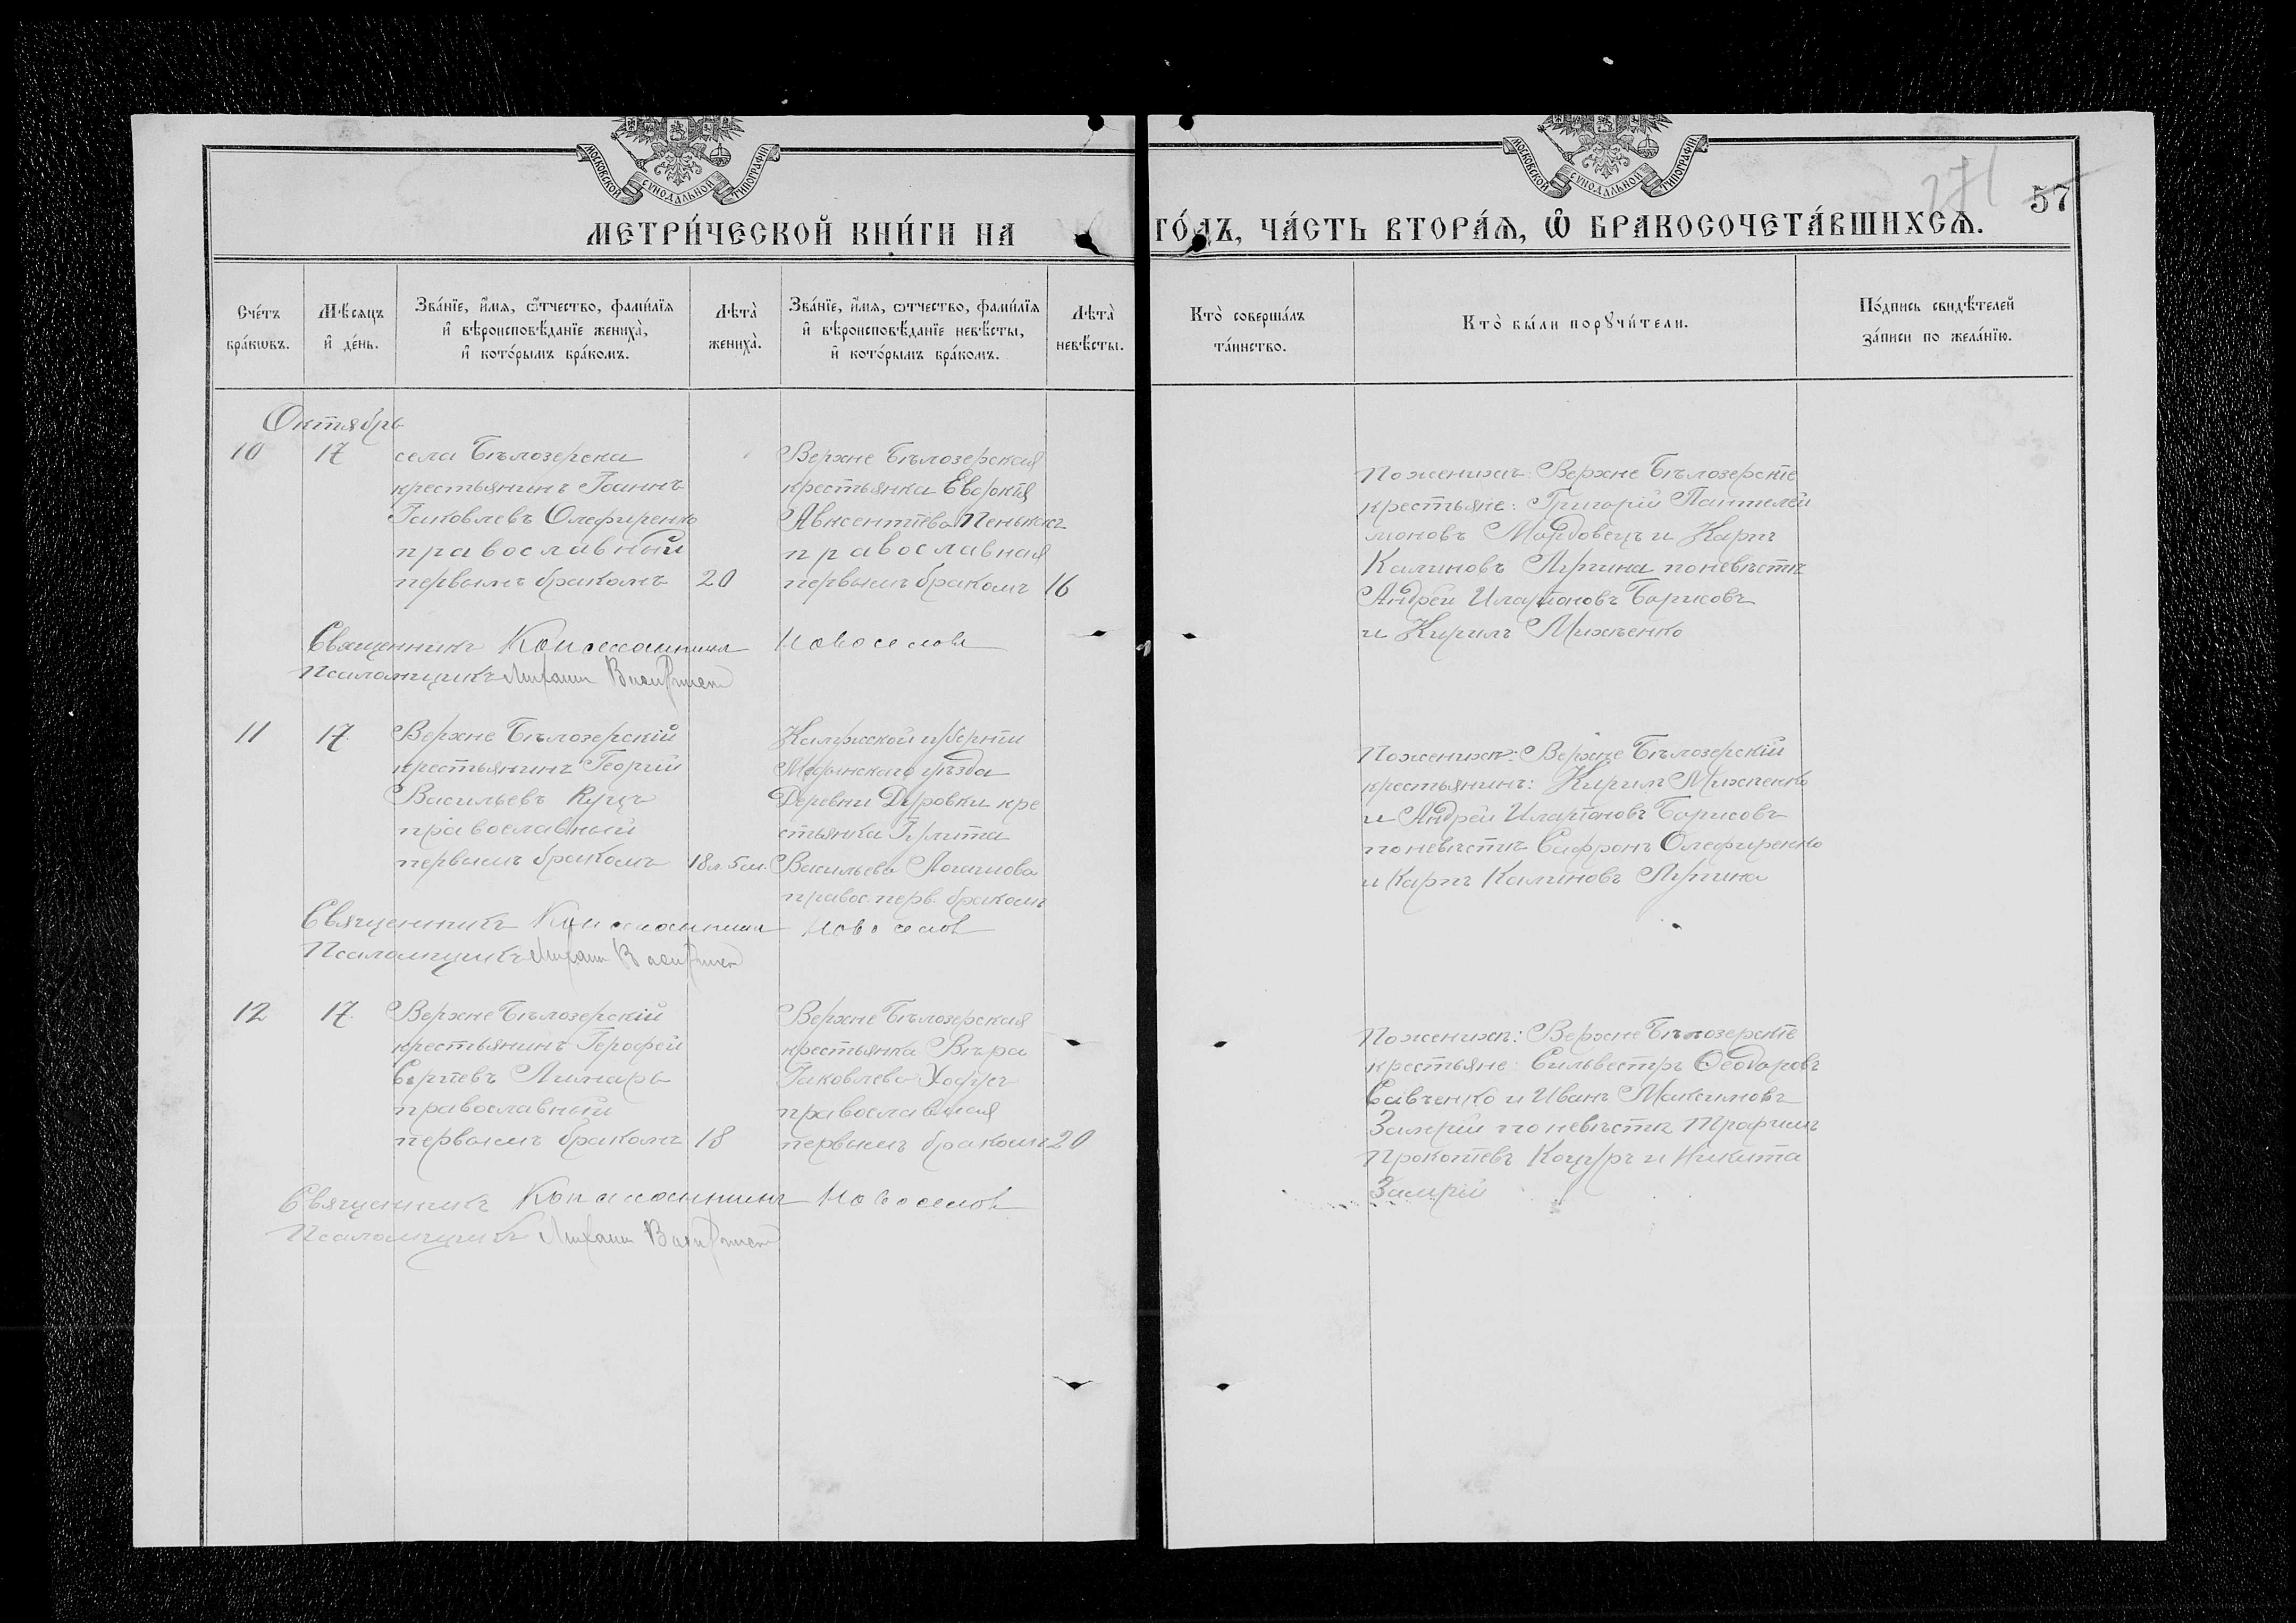 МОСКОВСКОЙ СѴНОДАЛЬНОЙ ТИПОГРАФІИ
МОСКОВСКОЙ СѴНОДАЛЬНОЙ ТИПОГРАФІИ
271
57
МЕТРИ́ЧЕСКОЙ КНИ́ГИ НА
ГО́ДЪ, ЧА́СТЬ ВТОРА́Я, Ѽ БРАКОСОЧЕТА́ВШИХСѦ.
Сче́тъ бра́кѡвъ.
Мѣ́сяцъ и҆ де́нь.
Зва́нїе, и҆́мя, ѻ҆́тчество, фами́лїя и҆ вѣроисповѣ́данїе жениха̀, и҆ кото́рымъ бра́комъ.
Лѣта̀ жениха̀.
Зва́нїе, и҆́мя, ѻтчество, фами́лїя и҆ вѣроисповѣ́данїе невѣ́сты, и҆ кото́рымъ бра́комъ.
Лѣта̀ невѣ́сты.
Кто̀ соверша́лъ та́инство.
Кто̀ бы́ли порꙋчи́тели.
По́дпись свидѣ́телей за́писи по жела́нїю.
Октябрь
10
17
села Бѣлозерска
крестьянинъ Іоаннъ
Іаковлевъ Олефиренко
православный
первымъ бракомъ
20
Верхне Бѣлозерская
крестьянка Евдокія
Авксентіева
православная
первымъ бракомъ
16
По женихѣ: Верхне Бѣлозерскіе
крестьяне: Григорій Пантелей
моновъ и Карпъ
Калиновъ по невѣстѣ
Андрей Иларіоновъ Борисовъ
и Кирилъ Михненко
Священникъ Константинъ Новоселовъ
Псаломщикъ Михаилъ
11
17
Верхне Бѣлозерскій
крестьянинъ Георгій
Васильевъ Куцъ
православный
первымъ бракомъ
18 л. 5 м.
Калужской губерніи
Медынскаго уѣзда
Деревни Дуровки кре
стьянка Іулита
Васильева
правос. перв. бракомъ
По женихѣ: Верхне Бѣлозерскій
крестьянинъ: Кирилъ Михненко
и Андрей Иларіоновъ Борисовъ
по невѣстѣ Сафронъ Олефиренко
и Карпъ Калиновъ
Священникъ Константинъ Новоселовъ
Псаломщикъ Михаилъ
12
17
Верхне Бѣлозерскій
крестьянинъ Іерофей
Сергіевъ Лимарь
православный
первымъ бракомъ
18
Верхне Бѣлозерская
крестьянка Вѣра
Іаковлева
православная
первымъ бракомъ
20
По женихѣ: Верхне Бѣлозерскіе
крестьяне: Сильвестръ Ѳеодоровъ
Савченко и Иванъ Максимовъ
по невѣстѣ Трофимъ
Прокопіевъ Коцуръ и Никита
Священникъ Константинъ Новоселовъ
Псаломщикъ Михаилъ